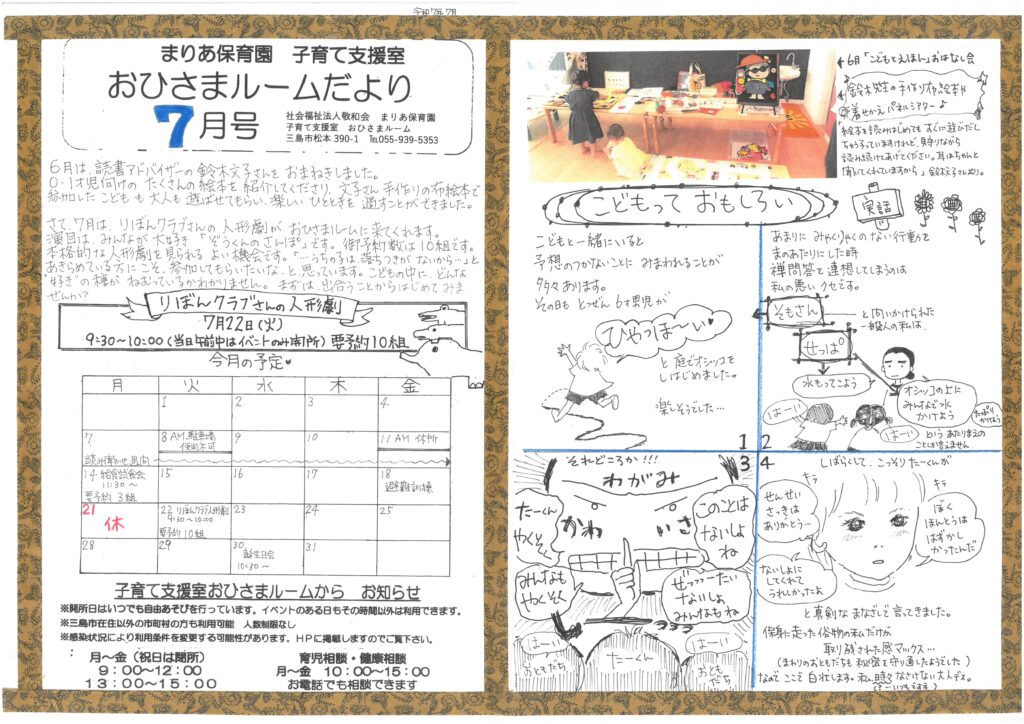 令和7年7月
まりあ保育園 子育て支援室
おひさまルームだより
7月号
社会福祉法人敬和会 まりあ保育園
子育て支援室 おひさまルーム
三島市松本390-1 ℡055-939-5353
6月は、読書アドバイザーの鈴木文子さんをおまねきしました。
0・1才児向けの たくさんの絵本を紹介してくださり、文子さん手作りの布絵本で
参加したこどもも大人も遊ばせてもらい、楽しいひとときを過すことができました。
さて、7月は、りぼんクラブさんの人形劇が おひさまルームに来てくれます。
演目は、みんなが大好き「ぞうくんのさんぽ」です。御予約数は10組です。
本格的な人形劇を見られる よい機会です。「…うちの子は落ちつきがないから…」と
あきらめている方にこそ、参加してもらいたいな、と思っています。こどもの中に、どんな
"好き"の種が ねむっているかわかりません。まずは、出合うことからはじめてみま
せんか?
りぼんクラブさんの人形劇
7月22日(火)
9:30~10:00(当日午前中はイベントのみ開所)要予約10組
今月の予定
月 火 水 木 金
1 2 3 4
7 8 AM 駐車場使用不可 9 10 11 AM 休所
読み聞かせ週間
14 給食試食会 11:30~ 要予約 3組 15 16 17 18 避難訓練
21 休 22 りぼんクラブ人形劇 9:30~10:00 要予約 10組 23 24 25
28 29 30 誕生日会 10:30~ 31
子育て支援室おひさまルームから お知らせ
※開所日はいつでも自由あそびを行っています。イベントのある日もその時間以外は利用できます。
※三島市在住以外の市町村の方も利用可能 人数制限なし
※感染状況により利用条件を変更する可能性があります。HPに掲載しますのでご覧下さい。
月~金(祝日は閉所)
9:00~12:00
13:00~15:00
育児相談・健康相談
月~金 10:00~15:00
お電話でも相談できます
6月「こどもとえほん」おはなし会
鈴木先生の手作り布絵本や
着せかえパネルシアター♪
絵本を読みはじめても すぐに遊びだし
ちゃう子っていますけれど、見守りながら
読み続けてあげてください。耳はちゃんと
聞いてくれていますから」鈴木文子さんより。
こどもって おもしろい
実話
こどもと一緒にいると
予想のつかないことに みまわれることが
多々あります。
その日も とつぜん 6才男児が
ひゃっほ~い♥
と 庭でオシッコを
しはじめました。
楽しそうでした…
1
あまりに みゃくりゃくのない行動を
まのあたりにした時
禅問答を連想してしまうのは
私の悪いクセです。
そもさん
と 問いかけられた
一般人の私は、
せっぱ
水もってこよう
オシッコの上に
みんなで水
かけよう
たっぷり
かけよう
はーい
はーい
という あたりまえの
ことしか言えません
2
3
それどころか!!!
わがみ
かわ
いさ
たーくん
やくそく
このことは
ないしょ
ね
みんなも
やくそく
ぜっつったい
ないしょ
みんなもね
はーい
おともだち
たーくん
はーい
おともだち
4
しばらくして、こっそりたーくんが
キラ
キラ
せんせい
さっきは
ありがとう…
ぼく
ほんとうは
はずかし
かったんだ
ないしょに
してくれて
うれしかったよ
と 真剣な まなざしで 言ってきました。
保身に走った俗物の私だけが
取り残された感マックス…
(まわりのおともだちも 秘密を守り通したようでした)
なので ここで 白状します。私、時々なさけない大人デス。